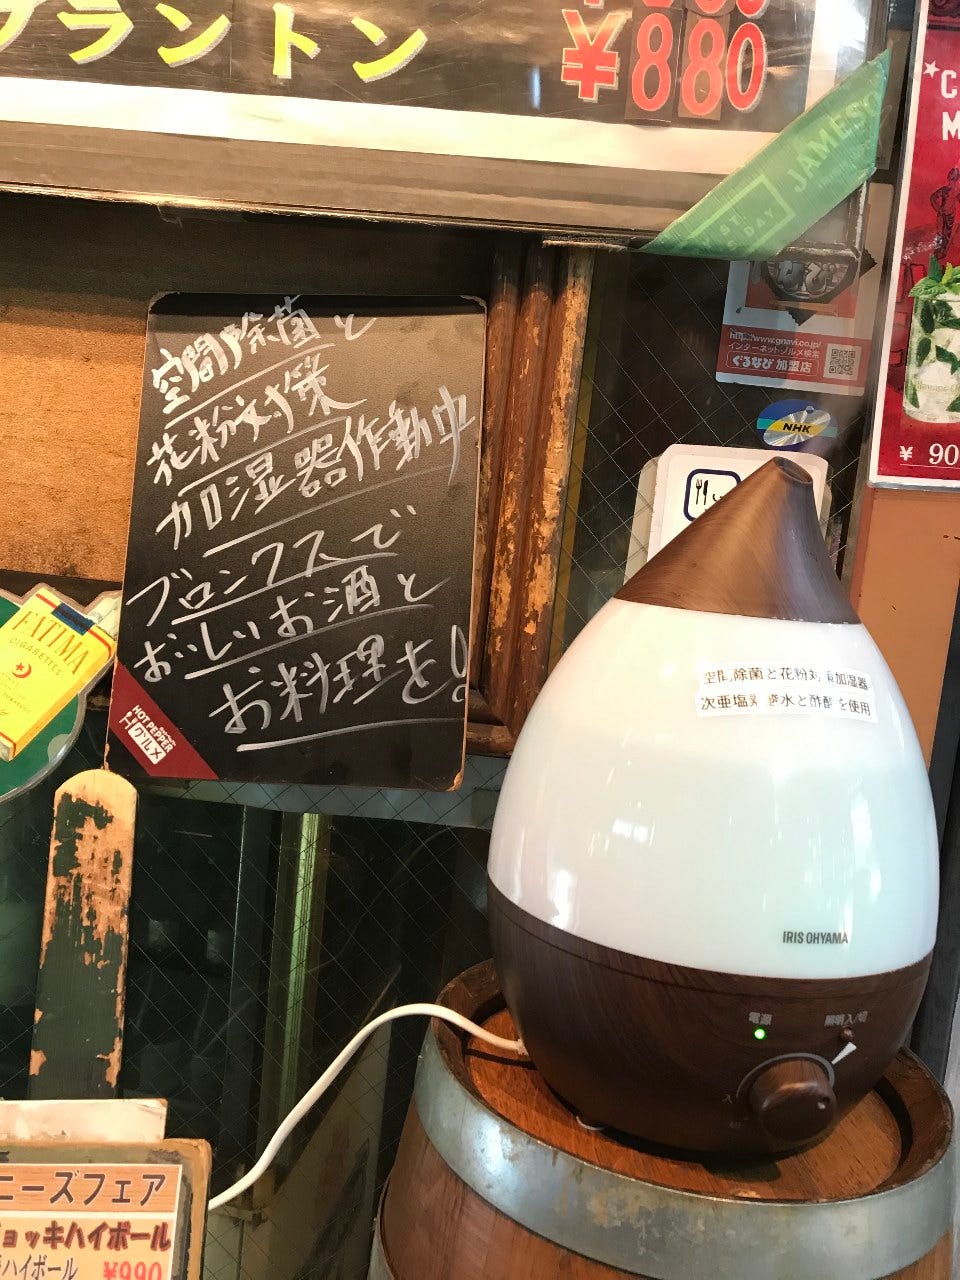 ラントン
¥880
JAMESO
DAY
http://www.gnavi.co.jp/
インターネット・グルメ検索
ぐるなび 加盟店
NHK
¥ 90
空間除菌と
花粉対策
加湿器作動中
ブロンクスで
おいしいお酒と
お料理を!
HOT PEPPER
グルメ
FATIMA
CIGARETTES
空間除菌と花粉対策加湿器
次亜塩素酸水と酢酸を使用
IRIS OHYAMA
電源
照明入/切
ニーズフェア
ョッキハイボール
ハイボール ¥990